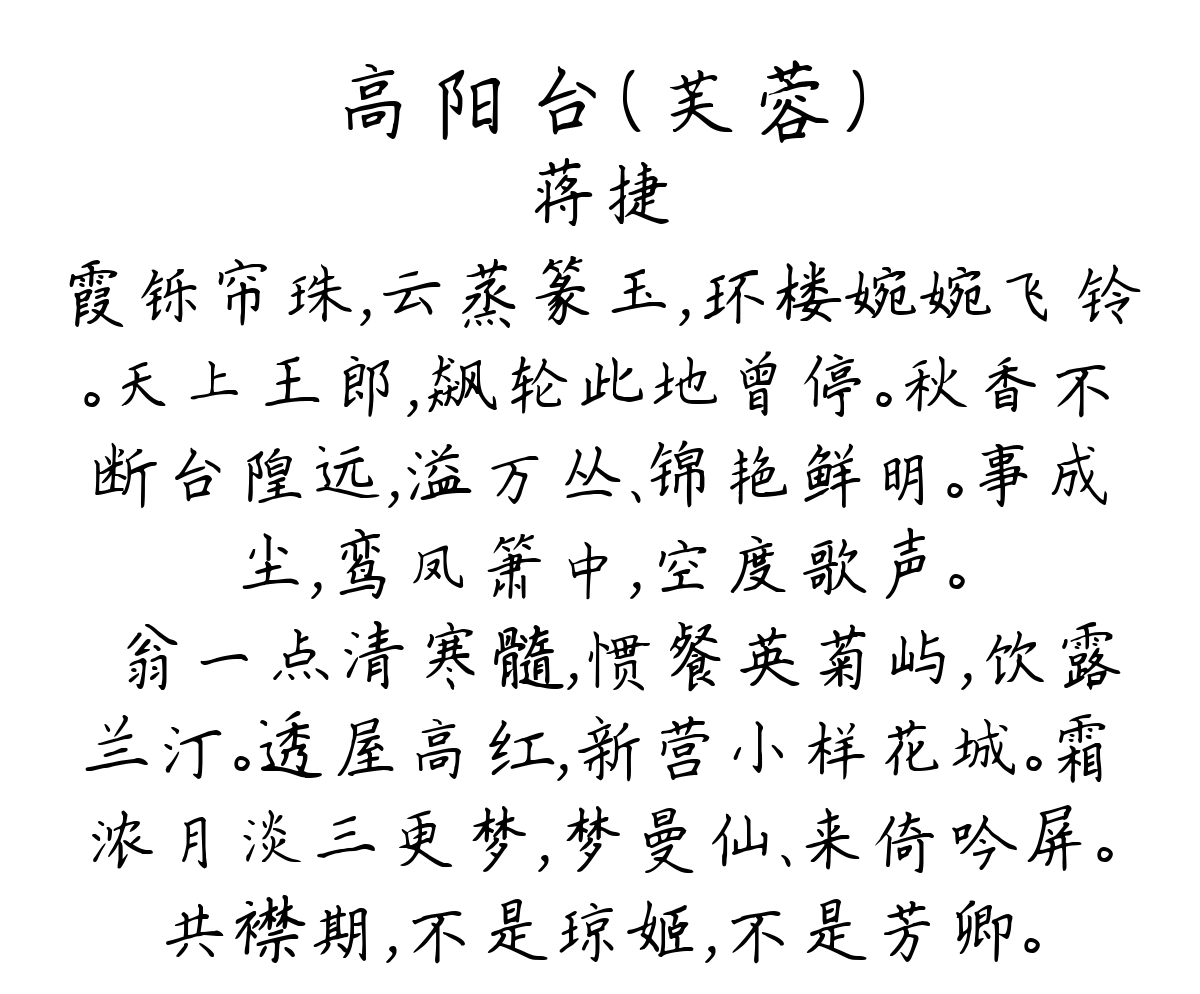 高阳台(芙蓉)
蒋捷
霞铄帘珠,云蒸篆玉,环楼婉婉飞铃
。天上王郎,飙轮此地曾停。秋香不
断台隍远,溢万丛、锦艳鲜明。事成
尘,鸾凤箫中,空度歌声。
翁一点清寒髓,惯餐英菊屿,饮露
兰汀。透屋高红,新营小样花城。霜
浓月淡三更梦,梦曼仙、来倚吟屏。
共襟期,不是琼姬,不是芳卿。